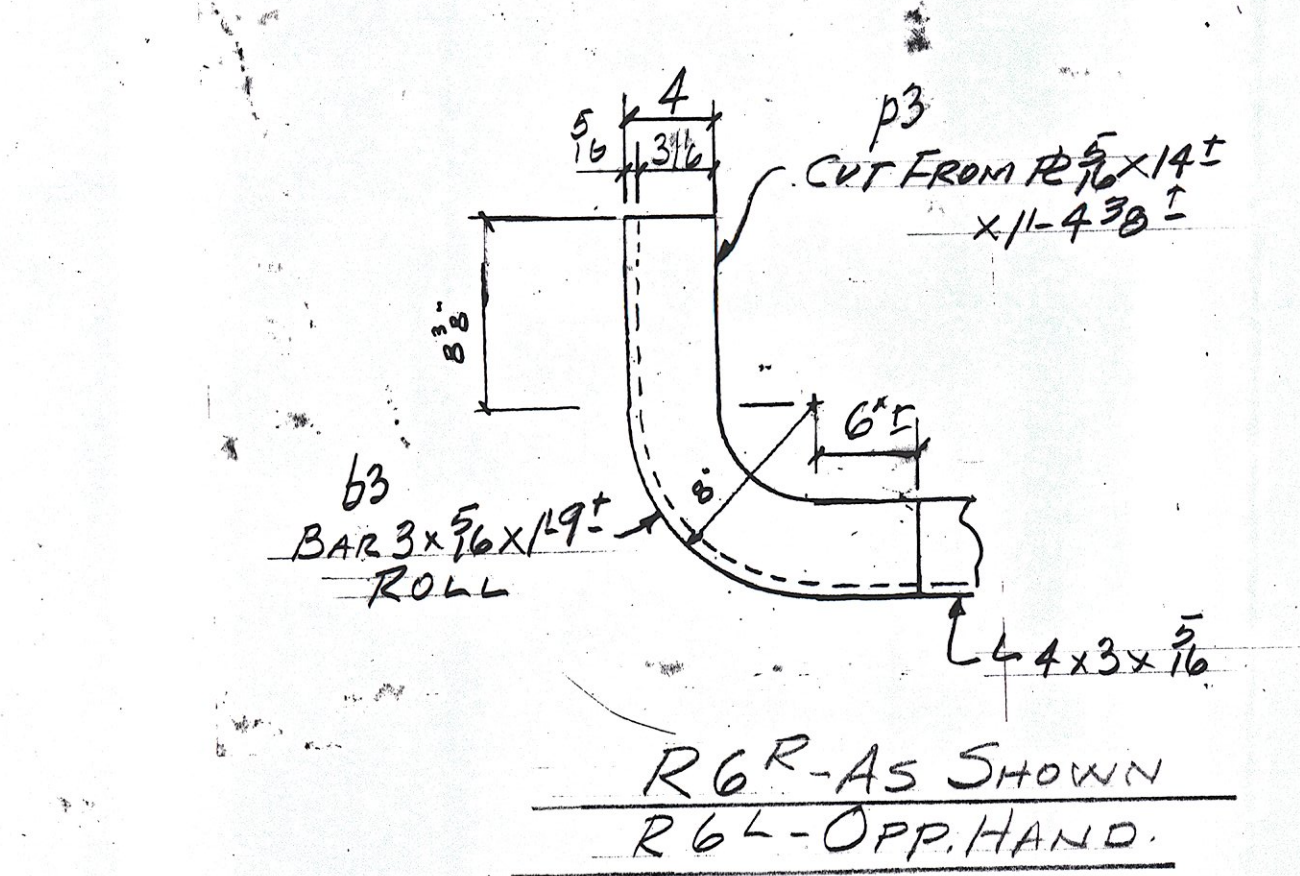 4
5/16
3 11/16
p3
CUT FROM PL 5/16 x 14 ±
x 1'-4 3/8 ±
8 3/8"
6" ±
8"
b3
BAR 3 x 5/16 x 1'-9 ±
ROLL
L 4 x 3 x 5/16
R6R - AS SHOWN
R6L - OPP. HAND.